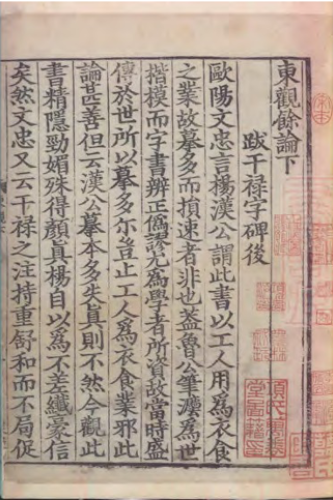 東觀餘論下
跋干祿字碑後
歐陽文忠言楊漢公謂此書以工人用爲衣食
之業故摹多而損速者非也蓋魯公筆灋爲世
楷模而字書辨正僞謬尤爲學者所資故當時盛
傳於世所以摹多尔豈止工人爲衣食業邪此
論甚善但云漢公摹本多失真則不然今觀此
書精隱勁媚殊得顔真楊自以爲不差纖豪信
矣然文忠又云干祿之注持重舒和而不局促